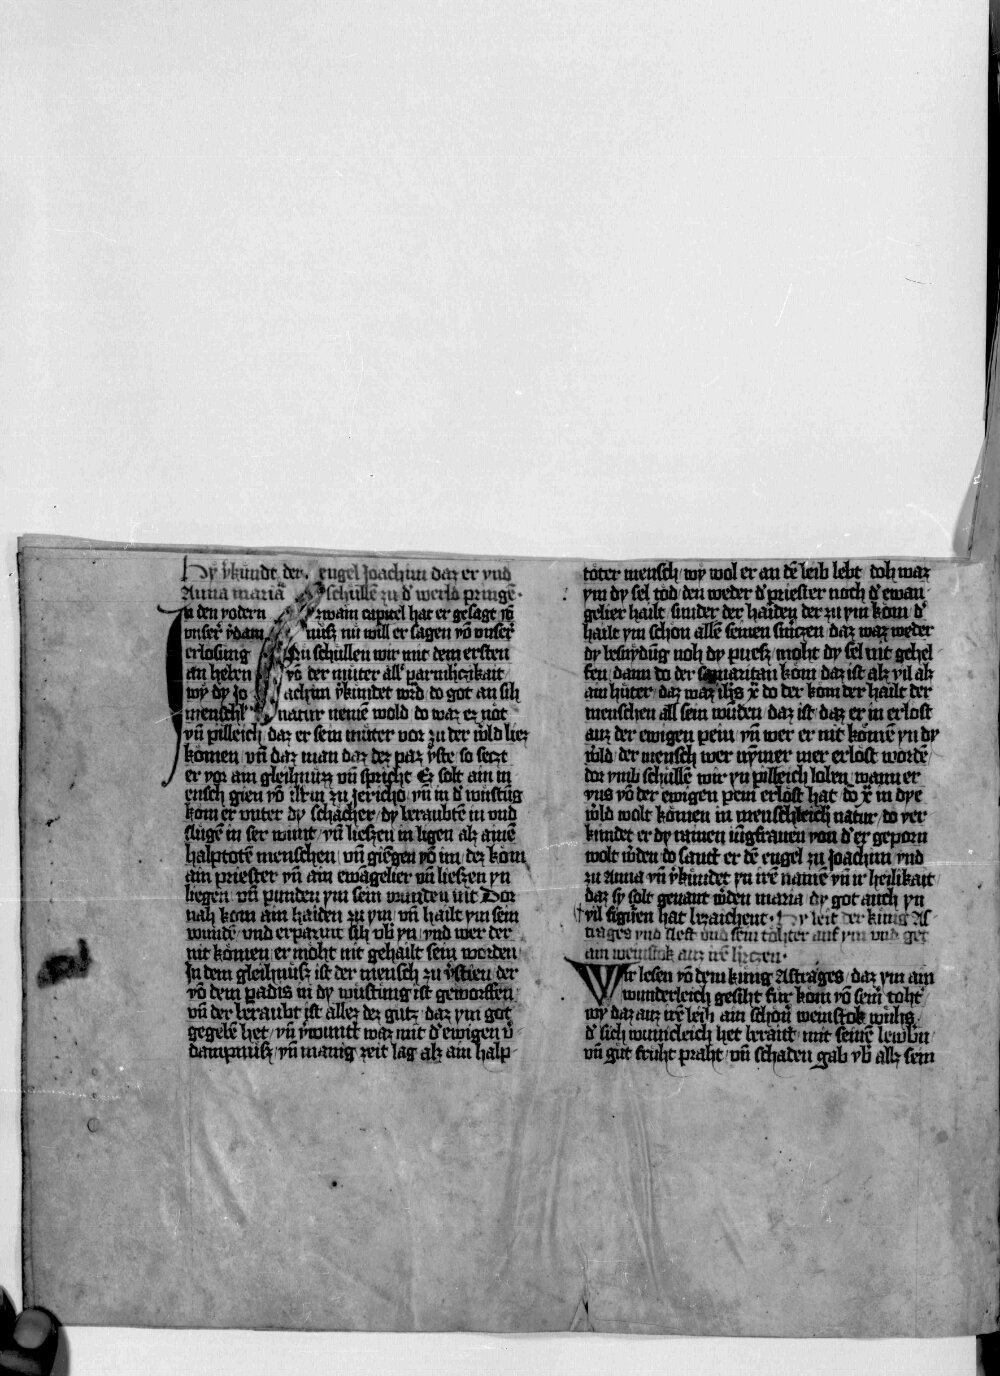 Hy v̄kundt der engel Joachim daz er vnd
Anna mariā schüllē zu d' werld pringē·
In den vodern zwain capitel hat er gesagt vō
vnser' v'dam nüsz nü will er sagen vō vnser'
erlosung Nu schüllen wir mit dem ersten
an heben vō der müter all' parmherzikait
wy dy Jo achim v'kündet w'd do got an sih
menschl' natur nemē wold do waz ez not
vn̄ pilleich daz er sein müter vor zu der w'ld liez
komen vn̄ daz man daz dez paz v'ste so seczt
er vor ain gleihnüzz vn̄ spricht Ez solt ain m
ensch gien vō ilr'm zu Jericho vn̄ in d' wüstūg
kom er vnter dy schacher dy beraubtē in vnd
slügē in ser wunt vn̄ lieszen in ligen alz ainē
halptotē menschen vn̄ giēgen vō im dez kom
ain priester vn̄ ain ewāgelier vn̄ lieszen yn
liegen vn̄ punden ym sein wunden nit Dor
nah kom ain haiden zu ym vn̄ hailt ym sein
wundē vnd erparmt sih vb' yn vnd wer der
nit komen er moht nit gehailt sein worden
In dem gleihnüsz ist der mensch zu v'stien der
vō dem p̄adis in dy wüstung ist geworffen
vn̄ der beraubt ist allez dez gutz daz ym got
gegebē het vn̄ v'wunt waz mit d' ewigen v'
dampnüsz vn̄ manig zeit lag alz ain halp
toter mensch wy wol er an dē leib lebt doh waz
ym dy sel tod den weder d' priester noch d' ewan
gelier hailt sunder der haiden der zu ym kom d'
hailt ym schon allē seinen smerzen daz waz weder
dy besnydūg noh dy puesz moht dy sel nit gehel
fen dann do der samaritan kom daz ist alz vil alz
ain hüter daz waz ih̄s x̄ do der kom der hailt der
menschen all sein wūden daz ist daz er in erlost
auz der ewigen pein vn̄ wer er nit komē yn dy
w'ld der mensch wer nȳmer mer erlost wordē
dor vmb schüllē wir yn pilleich loben wann er
vns vō der ewigen pein erlost hat do x̄ in dye
w'ld wolt komen in menschleich natur do ver
kundet er dy rainen iūgfrauen von d' er geporn
wolt w'den do sant er dē engel zu Joachim vnd
zu Anna vn̄ v'kündet yn irē namē vn̄ ir heilikait
daz sy solt genant w'den maria dy got auch yn
vil figūen hat bezaichent· Hy leit der kunig As
trages vnd slefft vnd sein tohter auf ym vnd get
ain weinstok auz irē herzen·
Wir lesen vō dem kung Astrages daz ym ain
wunderleich gesiht für kom vō sein' toht'
wy daz auz irē leib ain schon' weinstok wuhs
d' sich wuncleich het beraitt mit seinē lewb'n
vn̄ güt früht praht vn̄ schaden gab vb' allz sein